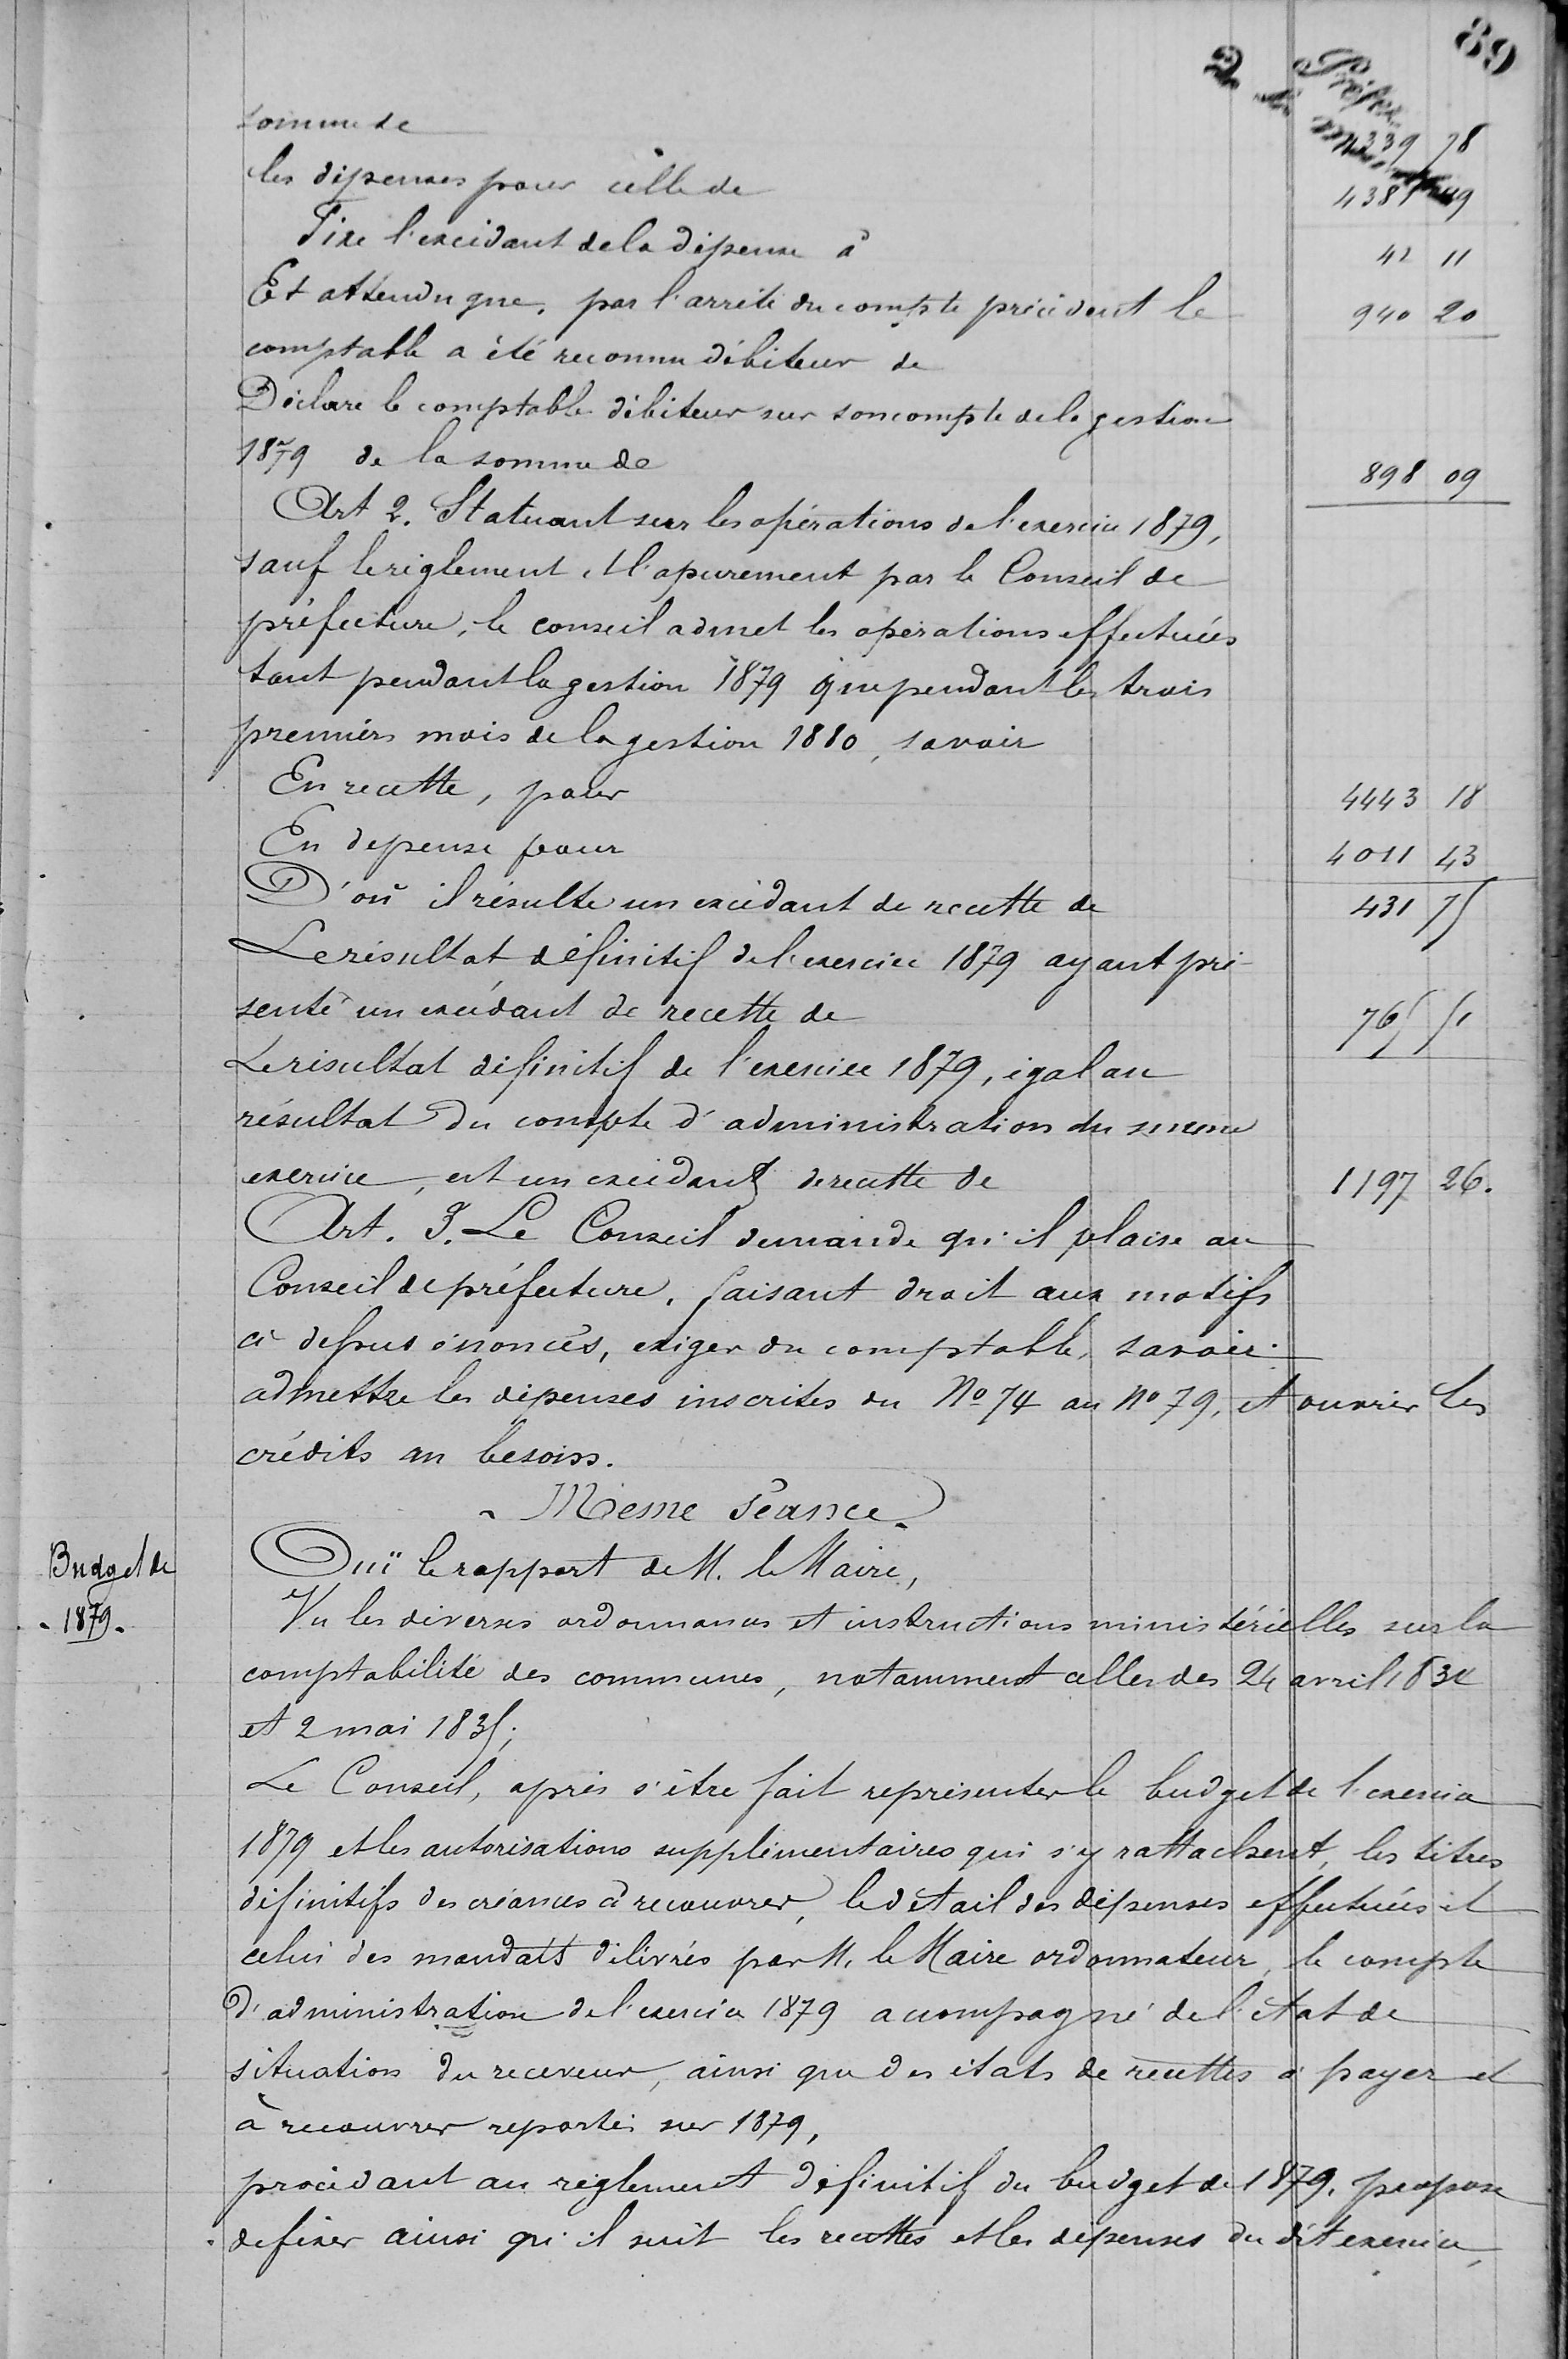 89
somme de 4339 78
les dépenses pour celle de 4381 89
Fixe l'excédant de la dépense à 42 11
Et attendu que, par l'arrêté du compte précédent le 940 20
comptable a été reconnu débiteur de
Déclare le comptable débiteur sur son compte de la gestion
1879 de la somme de 898 09
Art 2. Statuant sur les opérations de l'exercice 1879,
sauf le règlement et l'apurement par le Conseil de
préfecture, le conseil admet les opérations effectuées
tant pendant la gestion 1879 que pendant les trois
premiers mois de la gestion 1880, savoir
En recette, pour 4443 18
En depense pour 4011 43
D'où il résulte un excédant de recette de 431 75
Le résultat définitif de l'exercice 1879 ayant pré-
senté un excédant de recette de 765 51
Le résultat définitif de l'exercice 1879, égal au
résultat du compte d'administration du meme
exercice, est un excédant de recette de 1197 26.
Art. 3. Le Conseil demande qu'il plaise au
Conseil de préfecture, faisant droit aux motifs
ci dessus énoncés, exiger du comptable, savoir:
admettre les dépenses inscrites du No 74 au No 79, et ouvrir les
crédits au besoin.
Meme Séance.
Budget de
1879.
Ouï le rapport de M. le Maire,
Vu les diverses ordonnances et instructions ministérielles sur la
comptabilité des communes, notamment celles des 24 avril 1834
et 2 mai 1835;
Le Conseil, après s'être fait représenter le budget de l'exercice
1879 et les autorisations supplémentaires qui s'y rattachent, les titres
définitifs des créances à recouvrer, le détail des dépenses effectuées et
celui des mandats délivrés par M. le Maire ordonnateur, le compte
d'administration de l'exercice 1879 accompagné de l'état de
situation du receveur, ainsi que des états de recettes à payer et
à recouvrer reportés sur 1879,
procédant au règlement définitif du budget de 1879, propose
de fixer ainsi qu'il suit les recettes et les dépenses du dit exercice,